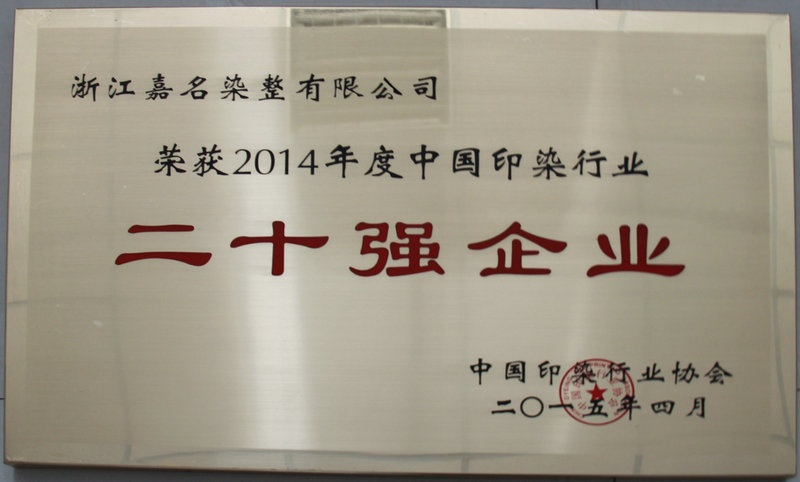 浙江嘉名染整有限公司
荣获2014年度中国印染行业
二十强企业
中国印染行业协会
二〇一五年四月